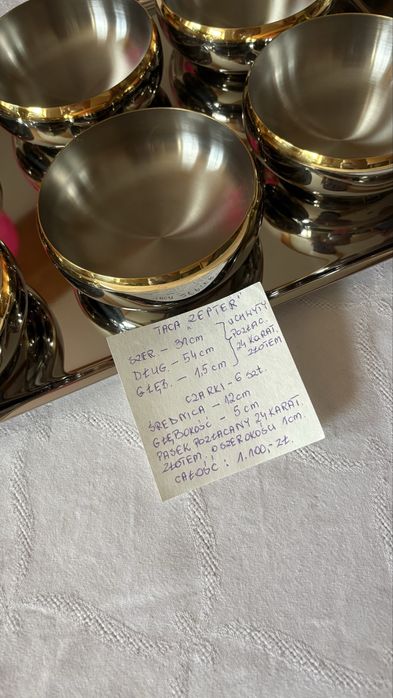 TACA „ZEPTER"
SZER – 31cm
DŁUG. – 54cm
GŁĘB. – 1,5cm
UCHWYTY
POZŁAC.
24 KARAT.
ZŁOTEM
CZARKI – 6 szt.
ŚREDNICA – 12cm
GŁĘBOKOŚĆ – 5cm
PASEK POZŁACANY 24 KARAT.
ZŁOTEM O SZEROKOŚCI 1cm.
CAŁOŚĆ: 1.100,- zł.